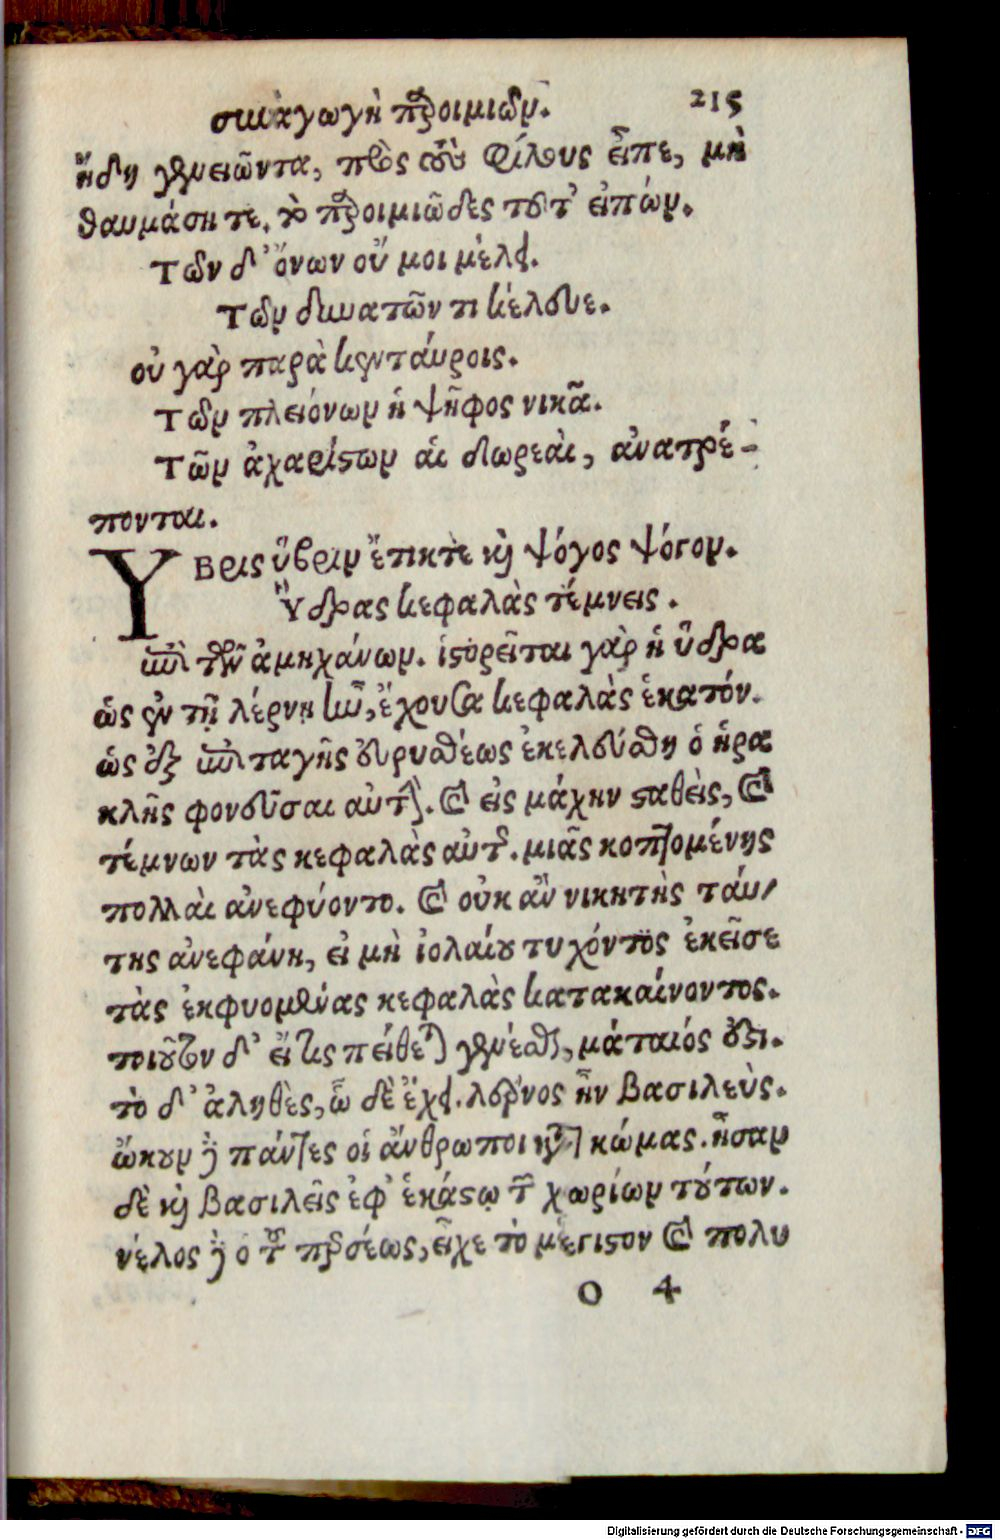 συναγωγὴ παροιμιῶν. 215
ἤδη γενειῶντα, πρὸς τοὺς φίλους εἶπε, μὴ
θαυμάσητε, τὸ παροιμιῶδες τοῦτ' εἰπών.
Τῶν δ' ὄνων οὔ μοι μέλει.
Τῶν δυνατῶν τι κέλευε.
οὐ γὰρ παρὰ κενταύροις.
Τῶν πλειόνων ἡ ψῆφος νικᾶ.
Τῶν ἀχαρίστων αἱ δωρεαὶ, ἀνατρέ-
πονται.
ΥΒρις ὕβριν ἔτικτε καὶ ψόγος ψόγον.
Ὕδρας κεφαλὰς τέμνεις.
ἐπὶ τῶν ἀμηχάνων. ἱστορεῖται γὰρ ἡ ὕδρα
ὡς ἐν τῇ λέρνῃ ἦν, ἔχουσα κεφαλὰς ἑκατόν.
ὡς ἐξ ἐπιταγῆς εὐρυσθέως ἐκελεύσθη ὁ ἡρα
κλῆς φονεῦσαι αὐτήν. καὶ εἰς μάχην σταθεὶς, καὶ
τέμνων τὰς κεφαλὰς αὐτῆς. μιᾶς κοπτομένης
πολλαὶ ἀνεφύοντο. καὶ οὐκ ἂν νικητὴς ταύ-
της ἀνεφάνη, εἰ μὴ ἰολάου τυχόντος ἐκεῖσε
τὰς ἐκφυομένας κεφαλὰς κατακαίνοντος.
τοιοῦτον δ' εἴ τις πείθεται γενέσθαι, μάταιός ἐστι.
τὸ δ' ἀληθὲς, ὧδε ἔχει. λέρνος ἦν βασιλεὺς.
ᾤκουν γὰρ πάντες οἱ ἄνθρωποι κατὰ κώμας. ἦσαν
δὲ καὶ βασιλεῖς ἐφ' ἑκάστῳ τῶν χωρίων τούτων.
νέλος γὰρ ὁ τοῦ περσέως, εἶχε τὸ μέγιστον καὶ πολυ
O 4
Digitalisierung gefördert durch die Deutsche Forschungsgemeinschaft - DFG